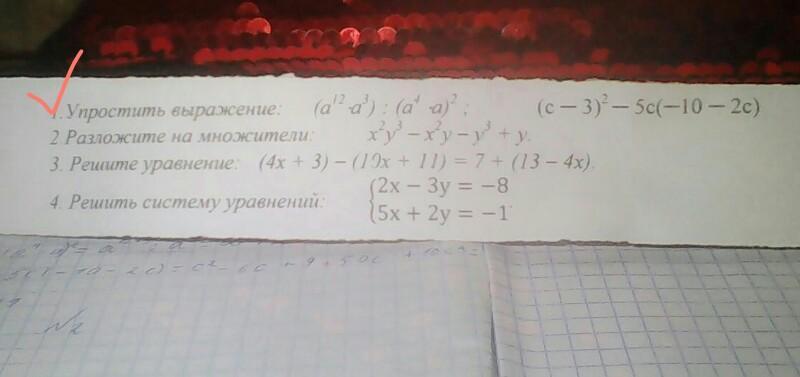 1. Упростить выражение: (a¹²·a³) : (a⁴·a)² ; (c – 3)² – 5c(–10 – 2c)
2 Разложите на множители: x²y³ – x²y – y³ + y.
3. Решите уравнение: (4x + 3) – (10x + 11) = 7 + (13 – 4x).
4. Решить систему уравнений: {2x – 3y = –8
5x + 2y = –1.
№2